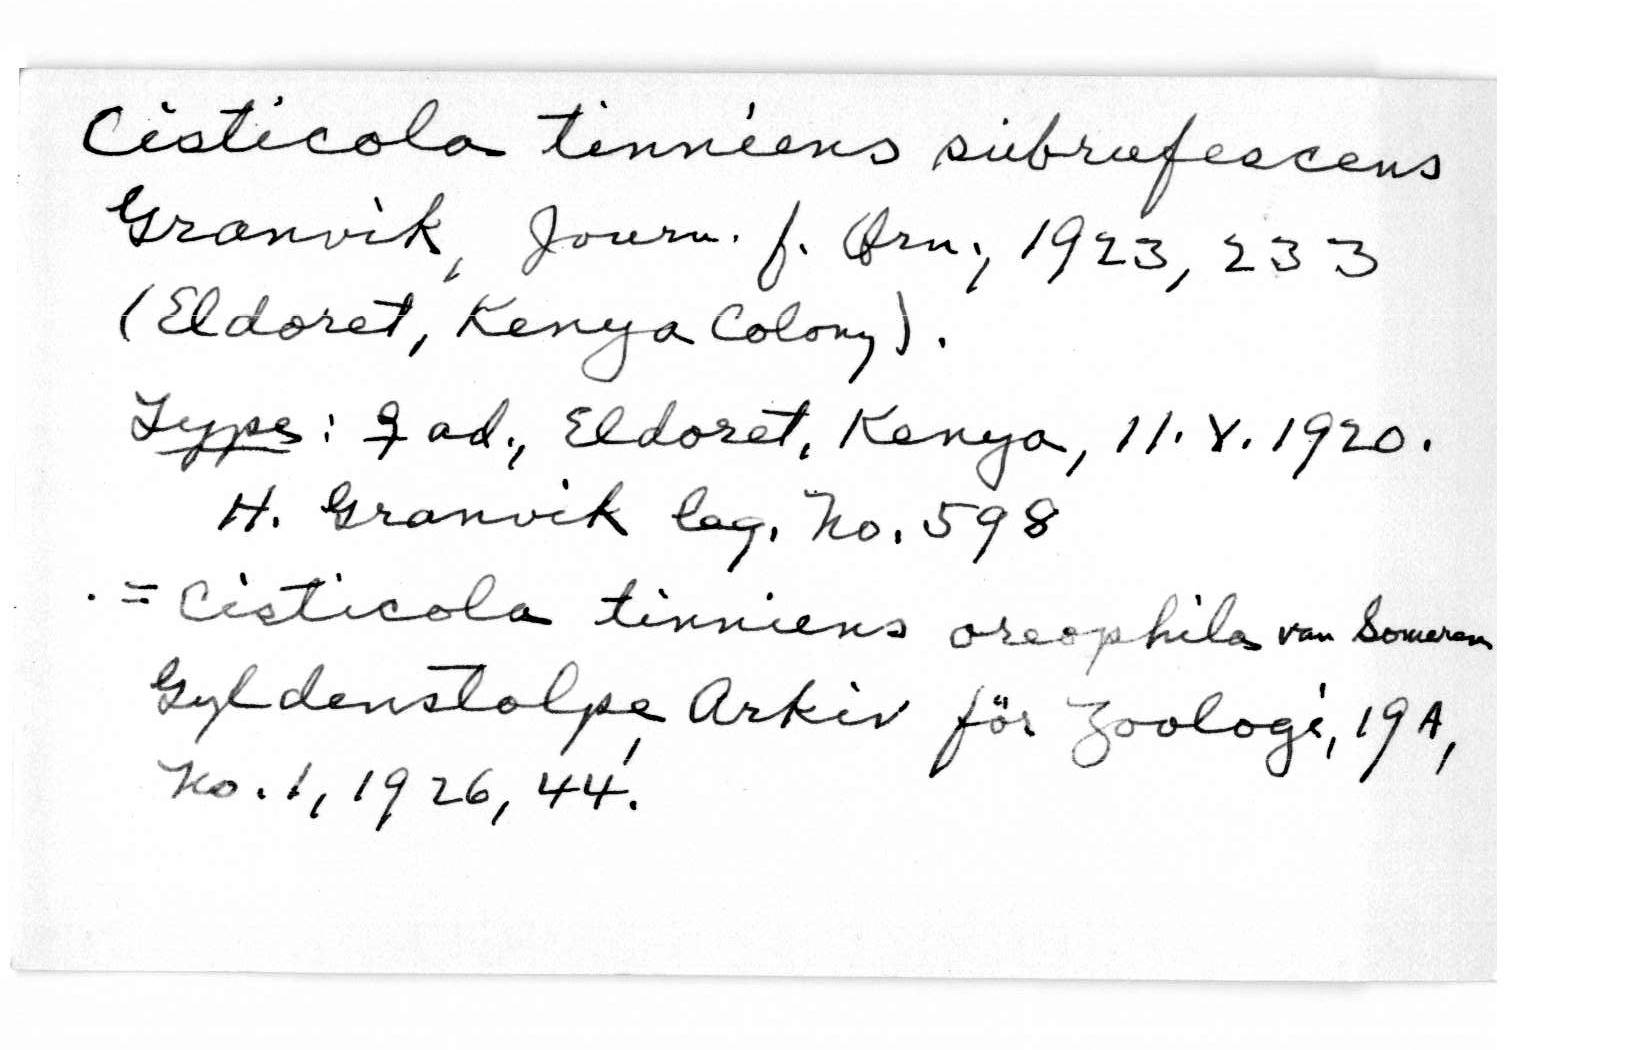 Cisticola tinniens subrufescens
Granvik, Journ. f. Orn., 1923, 233
(Eldoret, Kenya Colony).
Type: ♀ ad., Eldoret, Kenya, 11. V. 1920.
H. Granvik leg. No. 598
. = Cisticola tinniens oreophila van Someren
Gyldenstolpe, Arkiv för Zoologi, 19 A,
No. 1, 1926, 44.